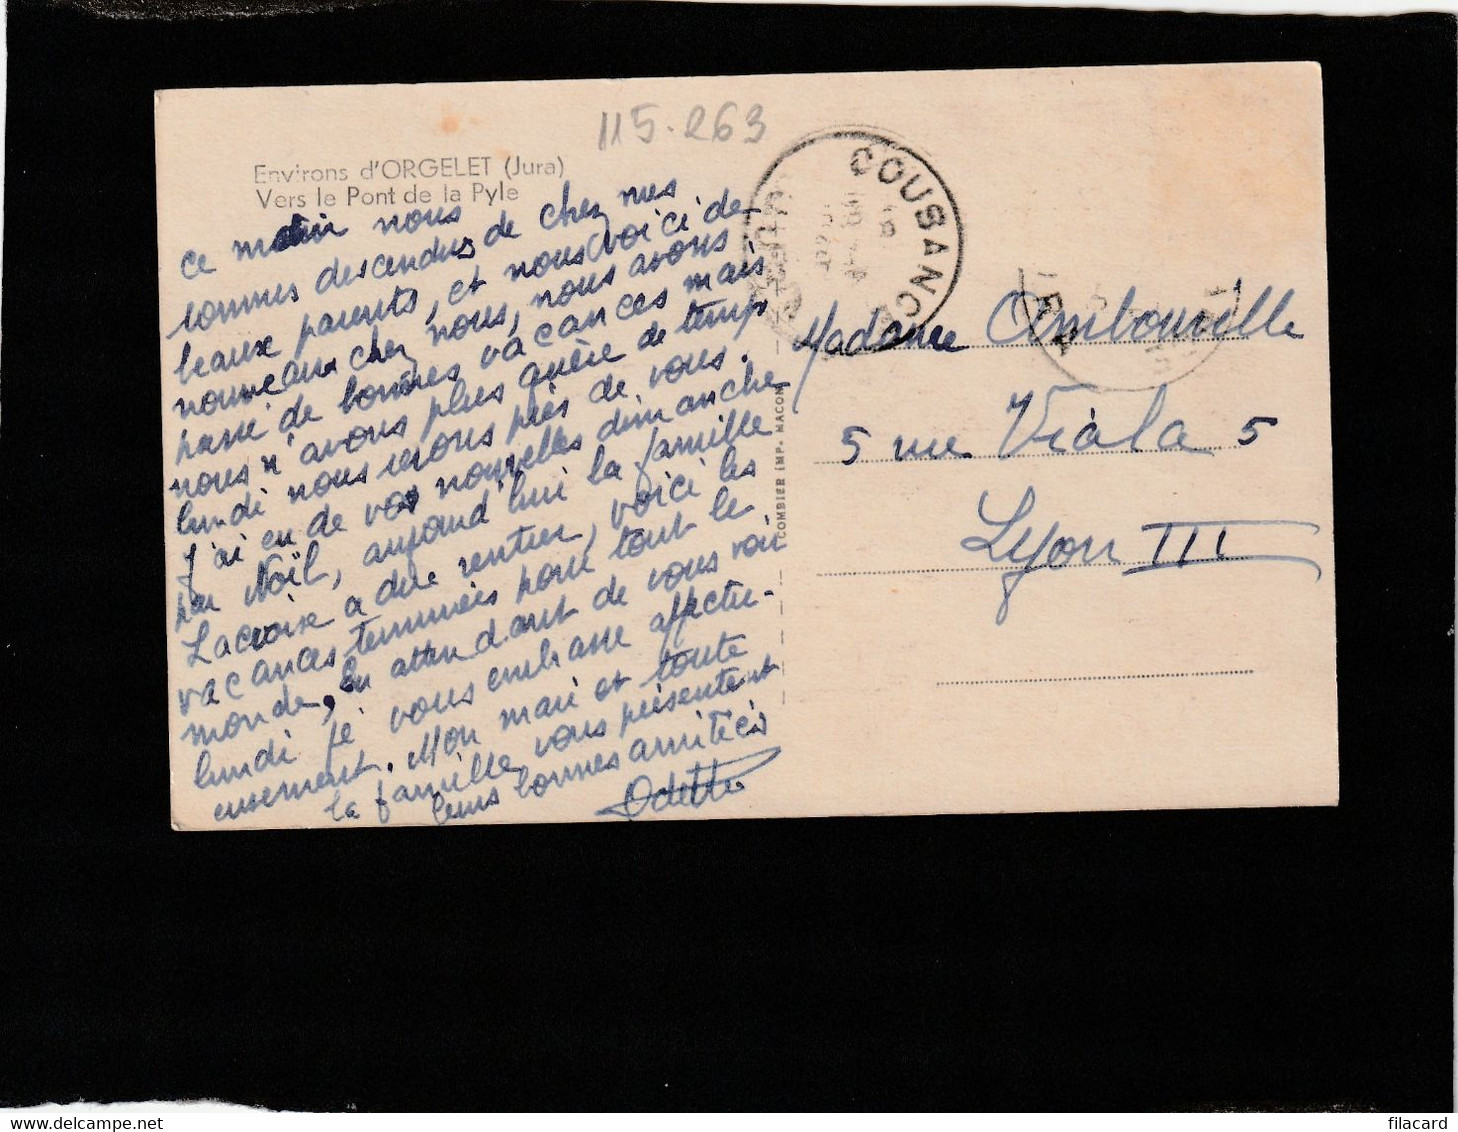 115-263
Environs d'ORGELET (Jura)
Vers le Pont de la Pyle
COUSANCE
JURA
ce matin nous
sommes descendus de chez mes
beaux parents, et nous voici de
nouveau chez nous, nous avons
passé de bonnes vacances mais
nous n'avons plus guère de temps
lundi nous serons près de vous.
J'ai eu de vos nouvelles dimanche
par Noël, aujourd'hui la famille
Lacroix a due rentrer, voici les
vacances terminées pour tout le
monde, En attendant de vous voir
lundi je vous embrasse affectu-
eusement. Mon mari et toute
la famille vous présentent
leurs bonnes amitiés
Odette
COMBIER IMP. MACON
Madame Ambouville
5 rue Viala 5
Lyon III
filacard.com